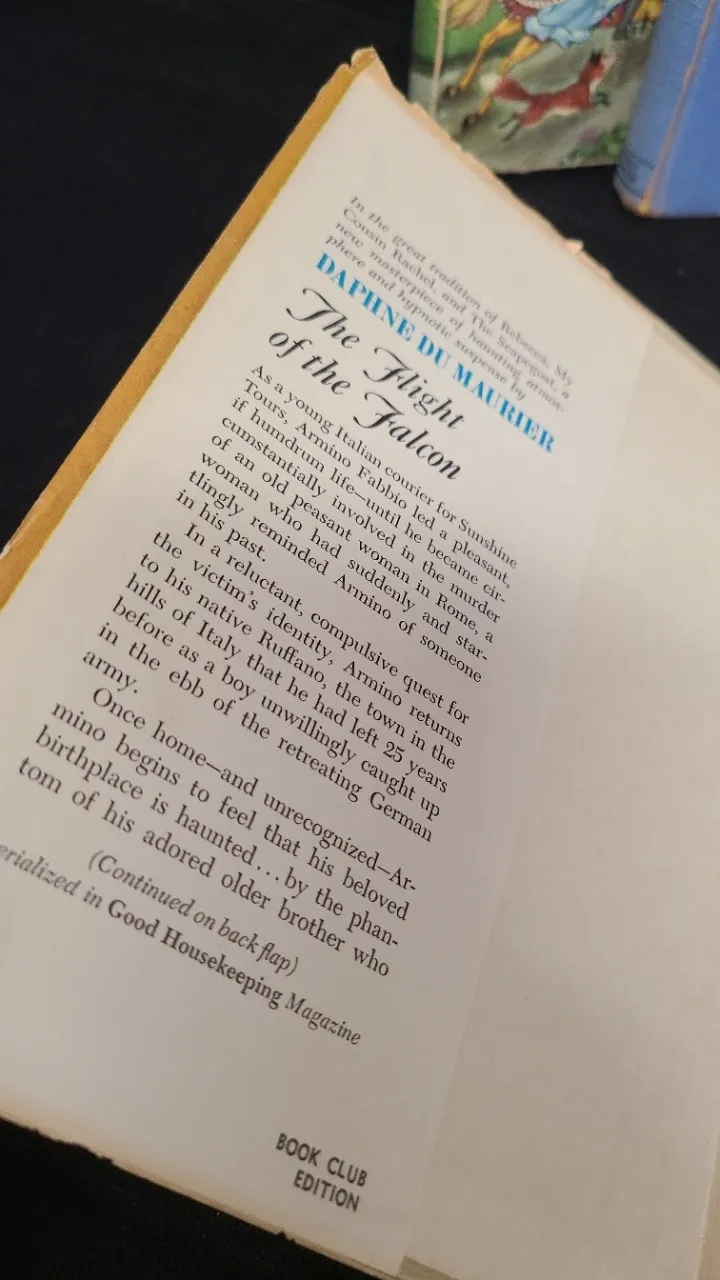 In the great tradition of Rebecca, My
Cousin Rachel, and The Scapegoat, a
new masterpiece of haunting atmos-
phere and hypnotic suspense by
DAPHNE DU MAURIER
The Flight
of the Falcon
As a young Italian courier for Sunshine
Tours, Armino Fabbio led a pleasant,
if humdrum life—until he became cir-
cumstantially involved in the murder
of an old peasant woman in Rome, a
woman who had suddenly and star-
tlingly reminded Armino of someone
in his past.
In a reluctant, compulsive quest for
the victim's identity, Armino returns
to his native Ruffano, the town in the
hills of Italy that he had left 25 years
before as a boy unwillingly caught up
in the ebb of the retreating German
army.
Once home—and unrecognized—Ar-
mino begins to feel that his beloved
birthplace is haunted...by the phan-
tom of his adored older brother who
(Continued on back flap)
erialized in Good Housekeeping Magazine
BOOK CLUB
EDITION